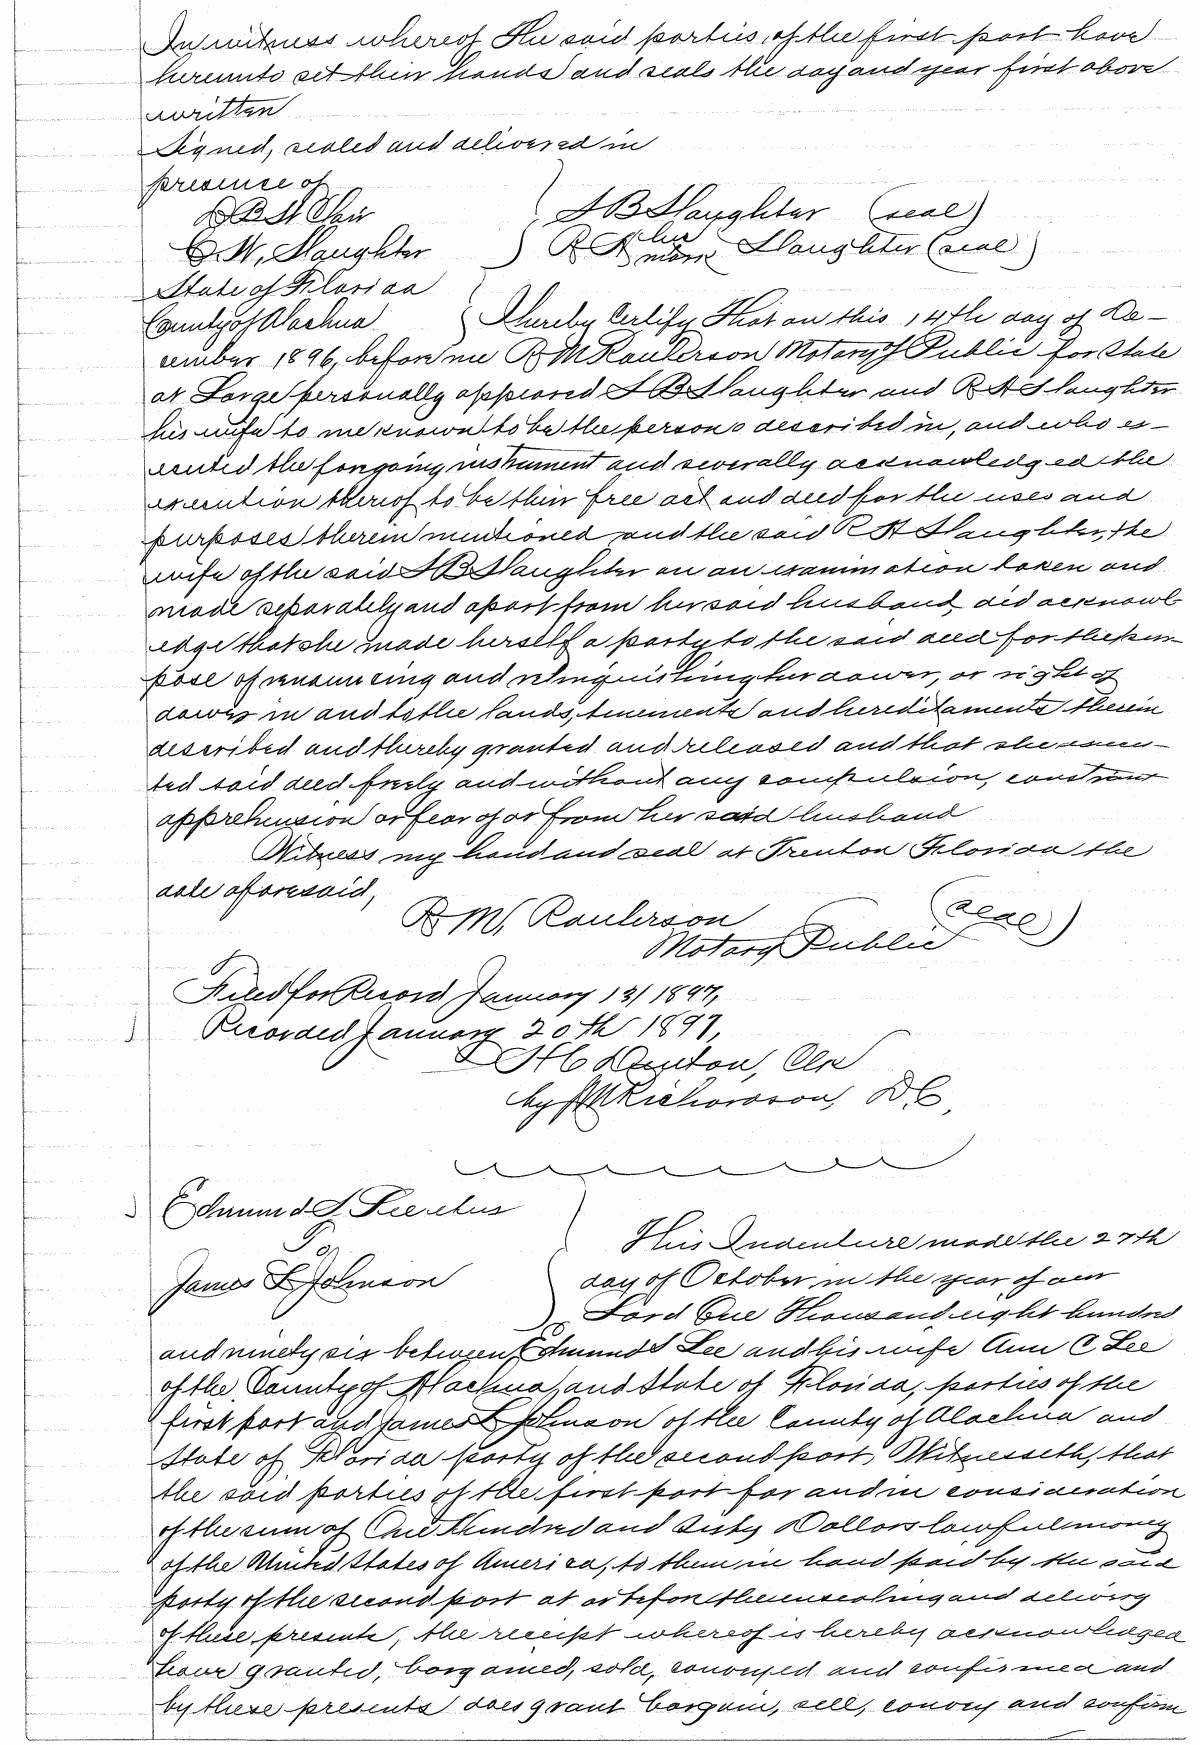 In witness whereof the said parties of the first part have
hereunto set their hands and seals the day and year first above
written
Signed, sealed and delivered in
presence of
B St Clair
C. W. Slaughter
J B Slaughter (seal)
R A her mark Slaughter (seal)
State of Florida
County of Alachua
I hereby Certify That on this 14th day of De-
cember 1896, before me R M Raulerson Notary Public for State
at Large personally appeared J B Slaughter and R A Slaughter
his wife to me known to be the persons described in, and who ex-
ecuted the forgoing instrument and severally acknowledged the
execution thereof to be their free act and deed for the uses and
purposes therein mentioned and the said R A Slaughter, the
wife of the said J B Slaughter on an examination taken and
made separately and apart from her said husband did acknowl
edge that she made herself a party to the said deed for the pur
pose of renouncing and relinquishing her dower, or right of
dower in and to the lands, tenements and hereditaments therein
described and thereby granted and released and that she execu-
ted said deed freely and without any compulsion, constraint
apprehension or fear of or from her said husband
Witness my hand and seal at Trenton Florida the
date aforesaid,
R M, Raulerson (seal)
Notary Public
Filed for Record January 13/ 1897,
Recorded January 20th 1897,
H C Denton, Clk
by Richardson, D.C.
Edmund S. Lee et us
To
James L Johnson
This Indenture made the 27th
day of October in the year of our
Lord One Thousand eight hundred
and ninety six between Edmund S Lee and his wife Ann C Lee
of the County of Alachua, and State of Florida, parties of the
first part and James L Johnson of the County of Alachua and
State of Florida party of the second part, Witnesseth, that
the said parties of the first part for and in consideration
of the sum of One Hundred and Sixty Dollars lawful money
of the United States of America, to them in hand paid by the said
party of the second part at or before the ensealing and delivery
of these presents, the receipt whereof is hereby acknowledged
have granted, bargained, sold, conveyed and confirmed and
by these presents does grant bargain, sell, convey and confirm